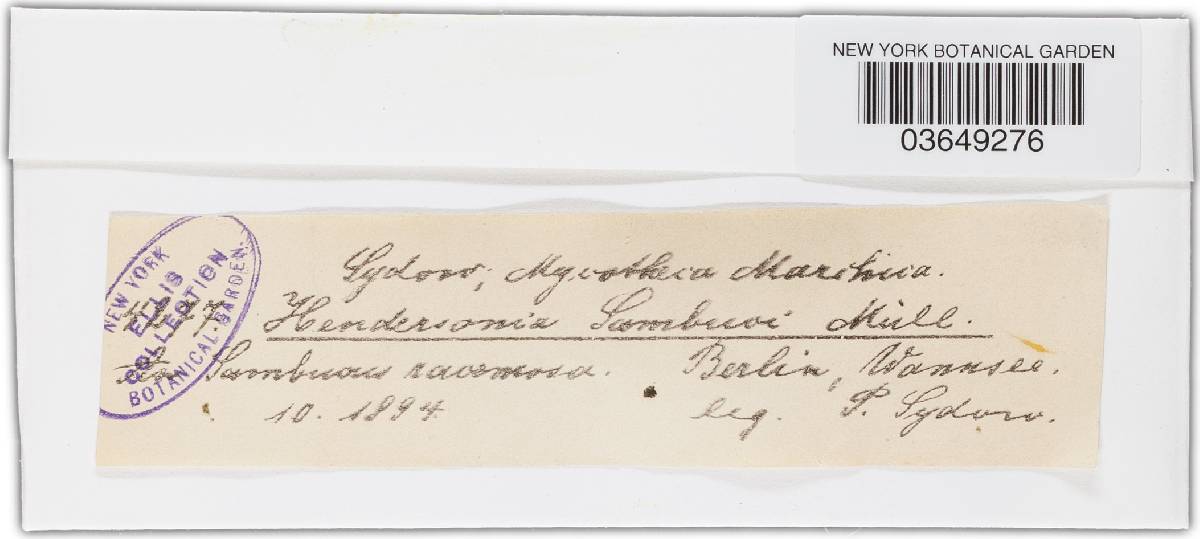 NEW YORK BOTANICAL GARDEN
03649276
NEW YORK
ELLIS
COLLECTION
BOTANICAL GARDEN.
Sydow, Mycotheca Marchica.
Hendersonia Sambuci Müll.
Sambucus racemosa. Berlin, Wannsee.
10. 1894 leg. P. Sydow.